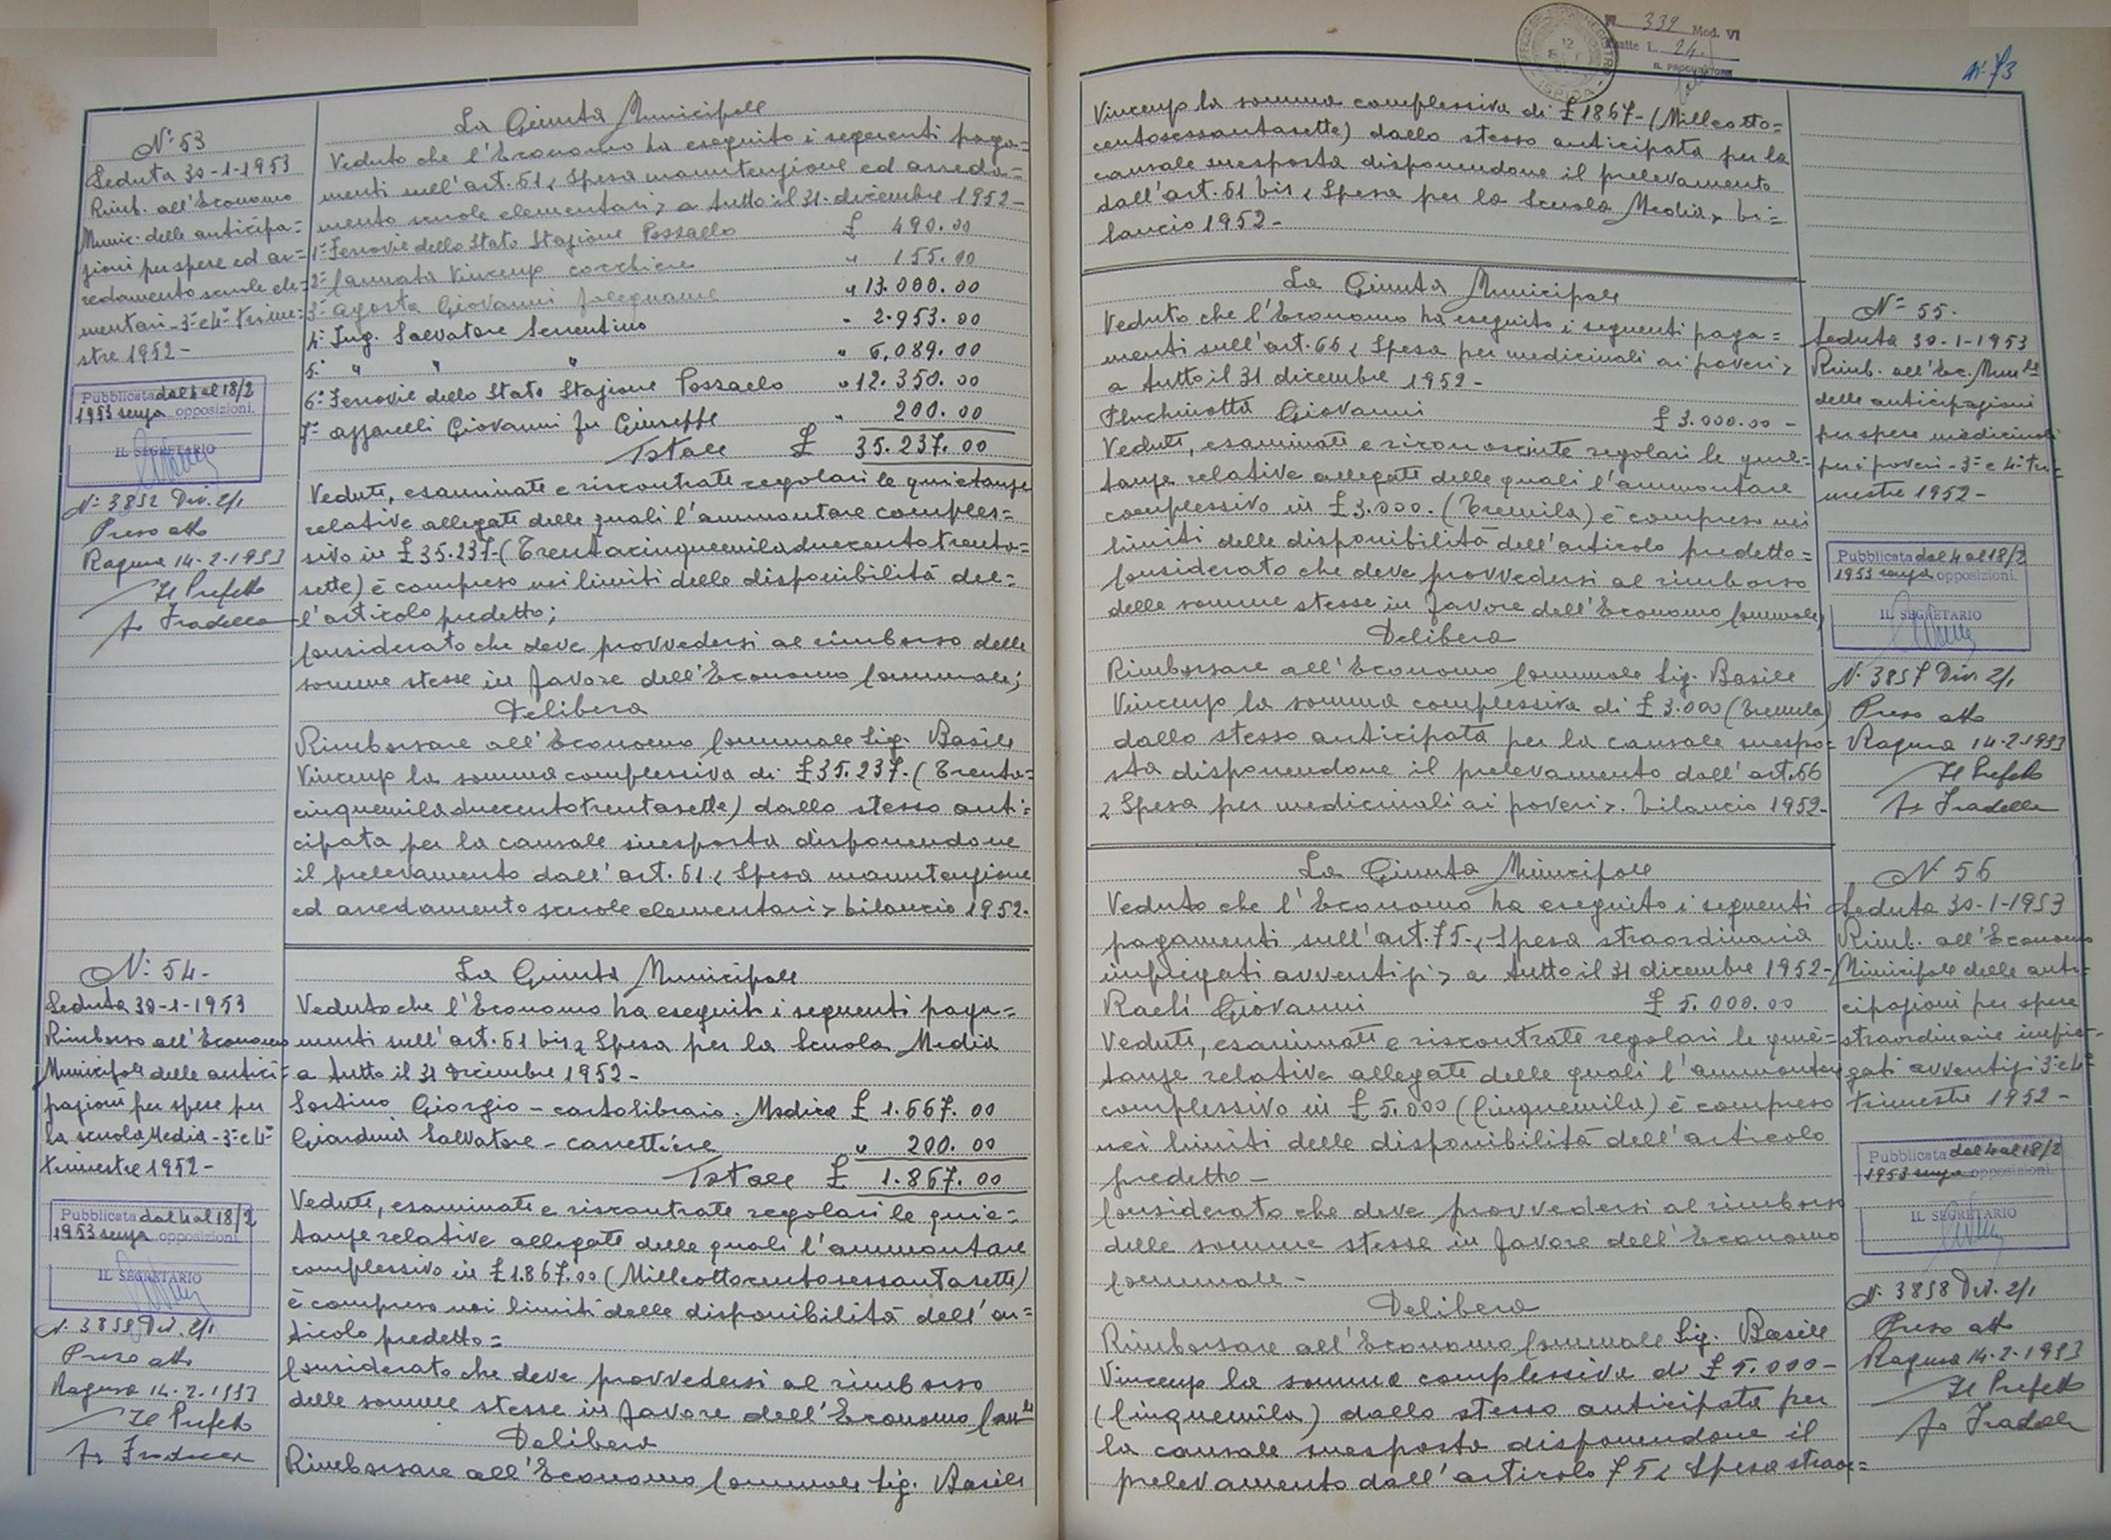 N: 53
Seduta 30-1-1953
Rimb. all'Economo
Munic. delle anticipa=
zioni per spese ed ar=
redamento scuole ele=
mentari - 3º e 4º trime=
stre 1952 -
Pubblicata dal 4 al 18/2
1953 senza opposizioni.
IL SEGRETARIO
N. 3852 Div. 2/1
Preso atto
Ragusa 14-2-1953
Il Prefetto
La Giunta Municipale
Veduto che l'Economo ha eseguito i seguenti paga=
menti sull'art. 51 "Spesa manutenzione ed arreda=
mento scuole elementari" a tutto il 31 dicembre 1952 -
1º Ferrovie dello Stato Stazione Pozzallo £ 490.00
2º Cannata Vincenzo cocchiere " 155.00
3º Agosta Giovanni falegname " 13.000.00
4º Ing. Salvatore Sorrentino " 2.953.00
5º " " " " 6.089.00
6º Ferrovie dello Stato Stazione Pozzallo " 12.350.00
7º Azzarelli Giovanni fu Giuseppe " 200.00
Totale £ 35.237.00
Vedute, esaminate e riscontrate regolari le quietanze
relative allegate delle quali l'ammontare comples=
sivo in £ 35.237 - (Trentacinquemiladuecentotrenta=
sette) è compreso nei limiti delle disponibilità del=
l'articolo predetto;
Considerato che deve provvedersi al rimborso delle
somme stesse in favore dell'Economo Comunale;
Delibera
Rimborsare all'Economo Comunale Sig. Basile
Vincenzo la somma complessiva di £ 35.237. (Trenta=
cinquemiladuecentotrentasette) dallo stesso anti=
cipata per la causale suesposta disponendone
il prelevamento dall'art. 51 "Spesa manutenzione
ed arredamento scuole elementari" bilancio 1952.
N: 54 -
Seduta 30-1-1953
Rimborso all'Economo
Municipale delle antici=
pazioni per spese per
la scuola Media - 3º e 4º
trimestre 1952 -
Pubblicata dal 4 al 18/2
1953 senza opposizioni.
IL SEGRETARIO
N. 3858 Div. 2/1
Preso atto
Ragusa 14-2-1953
Il Prefetto
La Giunta Municipale
Veduto che l'Economo ha eseguito i seguenti paga=
menti sull'art. 51 bis "Spesa per la Scuola Media
a tutto il 31 Dicembre 1952 -
Sortino Giorgio - cartolibraio. Modica £ 1.667.00
Giardina Salvatore - carrettiere " 200.00
Totale £ 1.867.00
Vedute, esaminate e riscontrate regolari le quie=
tanze relative allegate delle quali l'ammontare
complessivo in £ 1.867.00 (Milleottocentosessantasette)
è compreso nei limiti delle disponibilità dell'ar=
ticolo predetto =
Considerato che deve provvedersi al rimborso
delle somme stesse in favore dell'Economo Com.le
Delibera
Rimborsare all'Economo Comunale Sig. Basile
N. 339 Mod. VI
Esatte L. 24
IL PROCURATORE
ISPICA
Nº 73
Vincenzo la somma complessiva di £ 1867 - (Milleotto=
centosessantasette) dallo stesso anticipata per la
causale suesposta disponendone il prelevamento
dall'art. 51 bis "Spesa per la Scuola Media" bi=
lancio 1952 -
La Giunta Municipale
Veduto che l'Economo ha eseguito i seguenti paga=
menti sull'art. 66 "Spesa per medicinali ai poveri"
a tutto il 31 dicembre 1952 -
Penchinotta Giovanni £ 3.000.00 -
Vedute, esaminate e riconosciute regolari le quie=
tanze relative allegate delle quali l'ammontare
complessivo in £ 3.000. (Tremila) è compreso nei
limiti delle disponibilità dell'articolo predetto =
Considerato che deve provvedersi al rimborso
delle somme stesse in favore dell'Economo Comunale
Delibera
Rimborsare all'Economo Comunale Sig. Basile
Vincenzo la somma complessiva di £ 3.000 (Tremila)
dallo stesso anticipata per la causale suespo=
sta disponendone il prelevamento dall'art. 66
"Spesa per medicinali ai poveri". bilancio 1952 -
N: 55.
Seduta 30-1-1953
Rimb. all'Ec. Mun.le
delle anticipazioni
per spese medicinali
per i poveri - 3º e 4º tri=
mestre 1952 -
Pubblicata dal 4 al 18/2
1953 senza opposizioni.
IL SEGRETARIO
N. 3857 Div. 2/1
Preso atto
Ragusa 14-2-1953
Il Prefetto
La Giunta Municipale
Veduto che l'Economo ha eseguito i seguenti
pagamenti sull'art. 75 "Spesa straordinaria
impiegati avventizi" a tutto il 31 dicembre 1952 -
Raeli Giovanni £ 5.000.00
Vedute, esaminate e riscontrate regolari le quie=
tanze relative allegate delle quali l'ammontare
complessivo in £ 5.000 (Cinquemila) è compreso
nei limiti delle disponibilità dell'articolo
predetto -
Considerato che deve provvedersi al rimborso
delle somme stesse in favore dell'Economo
Comunale -
Delibera
Rimborsare all'Economo Comunale Sig. Basile
Vincenzo la somma complessiva di £ 5.000 -
(Cinquemila) dallo stesso anticipata per
la causale suesposta disponendone il
prelevamento dall'articolo 75 "Spesa straor=
N. 56
Seduta 30-1-1953
Rimb. all'Economo
Municipale delle anti=
cipazioni per spese
straordinarie impie=
gati avventizi 3º e 4º
trimestre 1952 -
Pubblicata dal 4 al 18/2
1953 senza opposizioni.
IL SEGRETARIO
N. 3858 Div. 2/1
Preso atto
Ragusa 14-2-1953
Il Prefetto